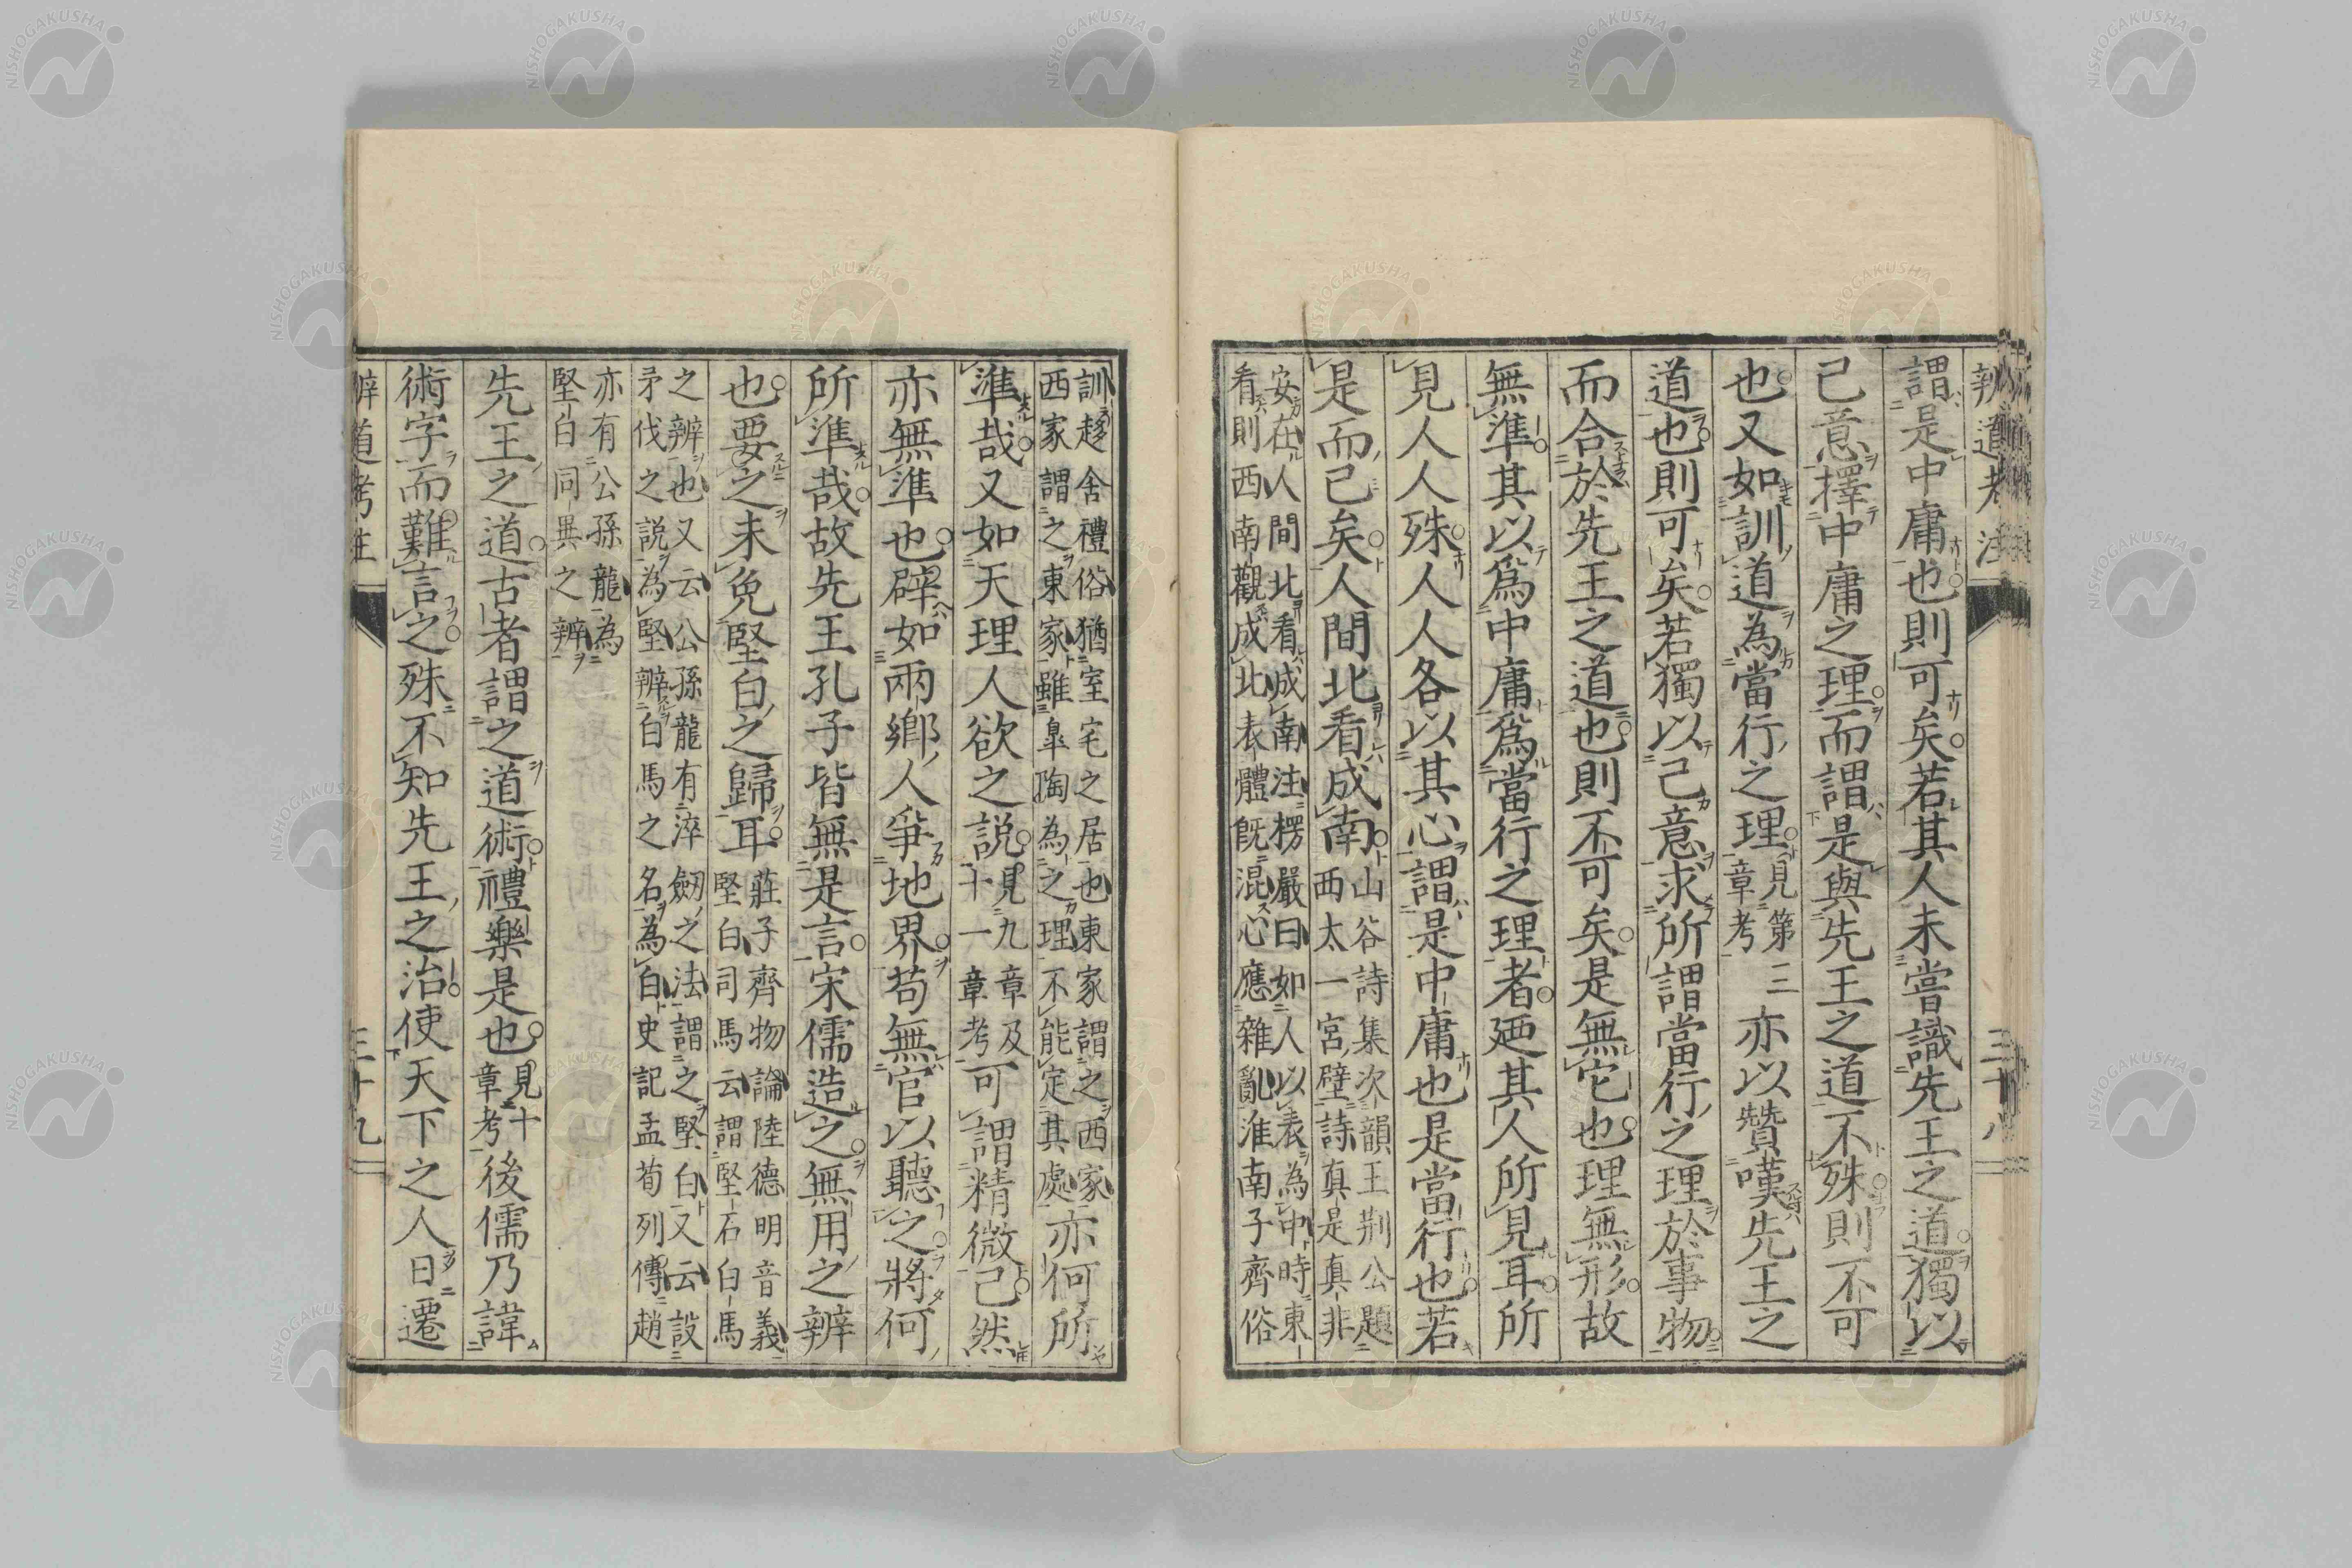 辨道考注
三十八
謂是中庸也則可矣若其人未嘗識先王之道獨以
己意擇中庸之理而謂是與先王之道不殊則不可
也又如訓道為當行之理見第三章考亦以贊嘆先王之
道也則可矣若獨以己意求所謂當行之理於事物
而合於先王之道也則不可矣是無它也理無形故
無準其以爲中庸爲當行之理者廼其人所見耳所
見人人殊人人各以其心謂是中庸也是當行也若
是而已矣人間北看成南山谷詩集次韻王荆公題
西太一宮壁詩真是真非
安在人間北看成南注楞嚴曰如人以表為中時東
看則西南觀成北表體旣混心應雜亂淮南子齊俗
訓趍舍禮俗猶室宅之居也東家謂之西家
西家謂之東家雖皐陶為之理不能定其處亦何所
準哉又如天理人欲之說見九章及十一章考可謂精微已然
亦無準也辟如兩鄉人爭地界苟無官以聽之將何
所準哉故先王孔子皆無是言宋儒造之無用之辨
也要之未免堅白之歸耳莊子齊物論陸德明音義
堅白司馬云謂堅石白馬
之辨也又云公孫龍有淬劒之法謂之堅白又云設
矛伐之說為堅辨白馬之名為白史記孟荀列傳趙
亦有公孫龍為
堅白同異之辨
先王之道古者謂之道術禮樂是也見十章考後儒乃諱
術字而難言之殊不知先王之治使天下之人日遷
辨道考注
三十九
NISHOGAKUSHA